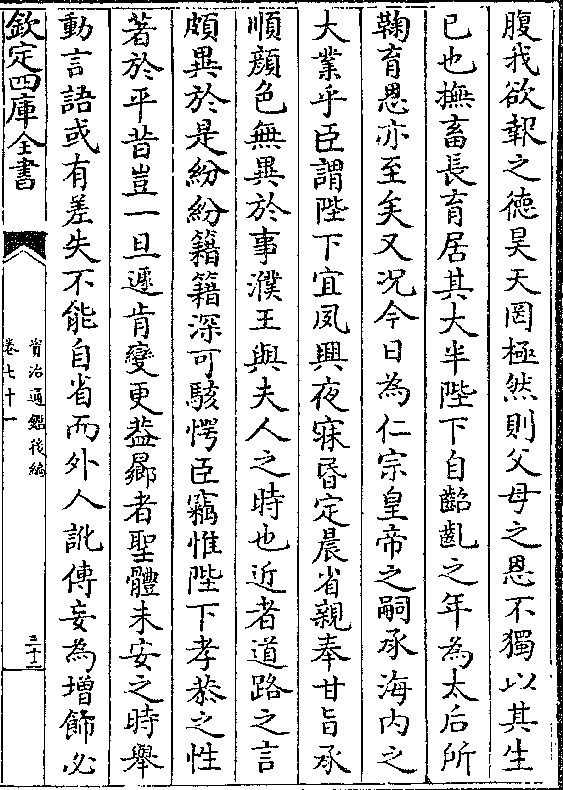 腹我欲報之德昊天罔極然則父母之恩不獨以其生
已也撫畜長育居其大半陛下自齠齓之年為太后所
鞠育恩亦至矣又況今日為仁宗皇帝之嗣承海内之
大業乎臣謂陛下宜夙興夜寐昏定晨省親奉甘旨承
順顔色無異於事濮王與夫人之時也近者道路之言
頗異於是紛紛籍籍深可駭愕臣竊惟陛下孝恭之性
著於平昔豈一旦遽肯變更葢曏者聖體未安之時舉
動言語或有差失不能自省而外人訛傳妄為増飾必
欽定四庫全書
資治通鑑後編
卷七十一
三十二